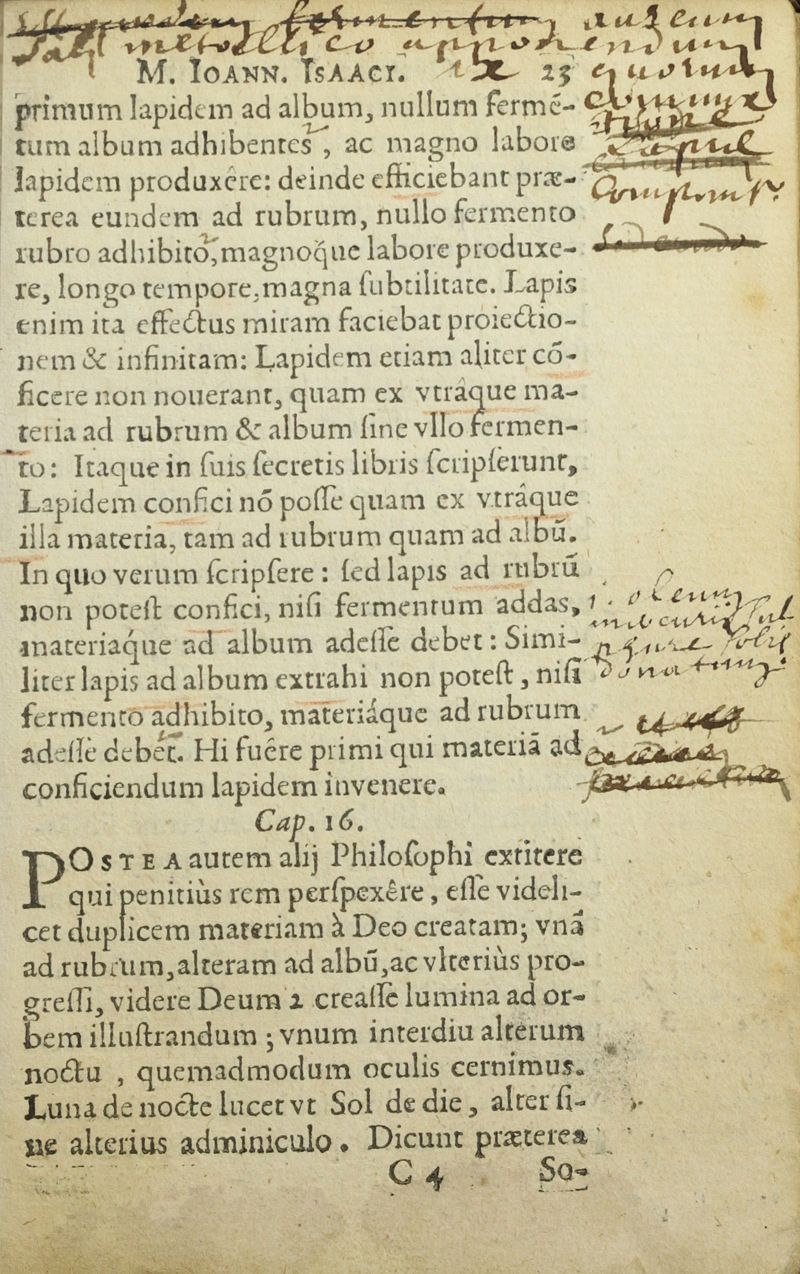 fermentum aureum
M. IOANN. ISAACI. 23
primum lapidem ad album, nullum fermē-
tum album adhibentes, ac magno labore
lapidem produxêre: deinde efficiebant præ-
terea eundem ad rubrum, nullo fermento
rubro adhibito, magnoq́ue labore produxe-
re, longo tempore, magna ſubtilitate. Lapis
enim ita effectus miram faciebat proiectio-
nem & infinitam: Lapidem etiam aliter cō-
ficere non nouerant, quam ex vtráque ma-
teria ad rubrum & album ſine vllo fermen-
to: Itaque in ſuis ſecretis libris ſcripſerunt,
Lapidem confici nō poſſe quam ex vtráque
illa materia, tam ad rubrum quam ad albū.
In quo verum ſcripſere: ſed lapis ad rubrū
non poteſt confici, niſi fermentum addas,
materiaq́ue ad album adeſſe debet: Simi-
liter lapis ad album extrahi non poteſt, niſi
fermento adhibito, materiáque ad rubrum
adeſſe debet. Hi fuêre primi qui materiā ad
conficiendum lapidem invenere.
Cap. 16.
POSTEA autem alij Philoſophi extitere
qui penitiùs rem perſpexêre, eſſe videli-
cet duplicem materiam à Deo creatam; vnā
ad rubrum, alteram ad albū, ac vlteriùs pro-
greſſi, videre Deum 2 creaſſe lumina ad or-
bem illuſtrandum; vnum interdiu alterum
noctu, quemadmodum oculis cernimus.
Luna de nocte lucet vt Sol de die, alter ſi-
ne alterius adminiculo. Dicunt præterea
C 4 So-